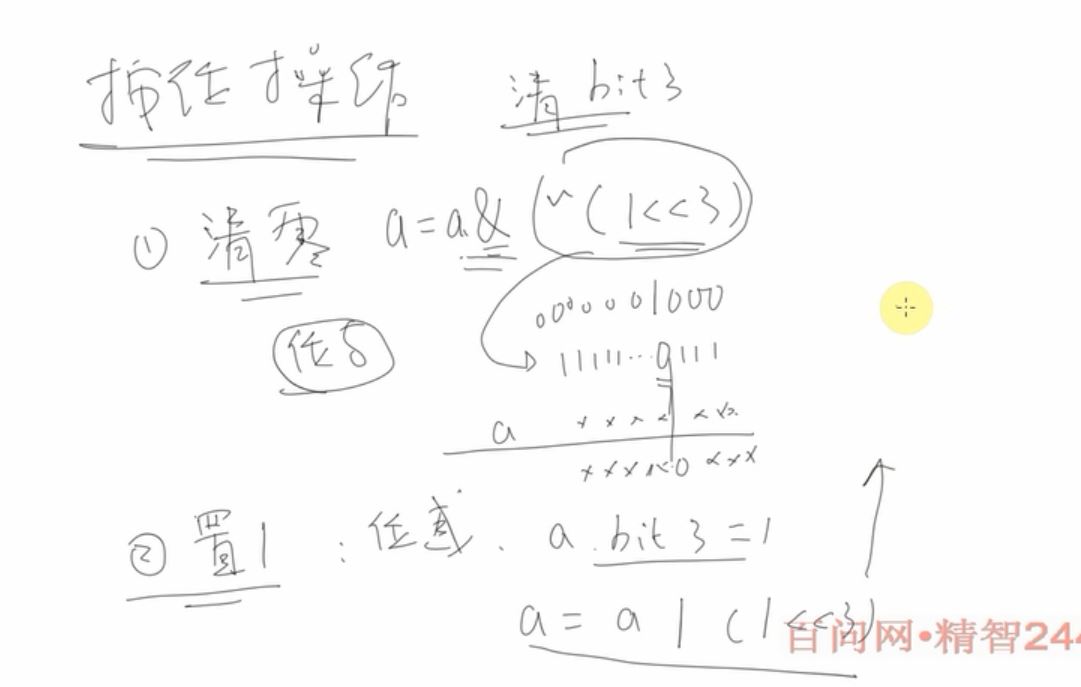 按位操作 清 bit3
① 清零 a=a&(~(1<<3))
0000001000
位与
11111...0111
a xxxx xxx
xxxx0xxx
② 置1 : 位或. a.bit3=1
a = a | (1<<3)
百问网•精智244